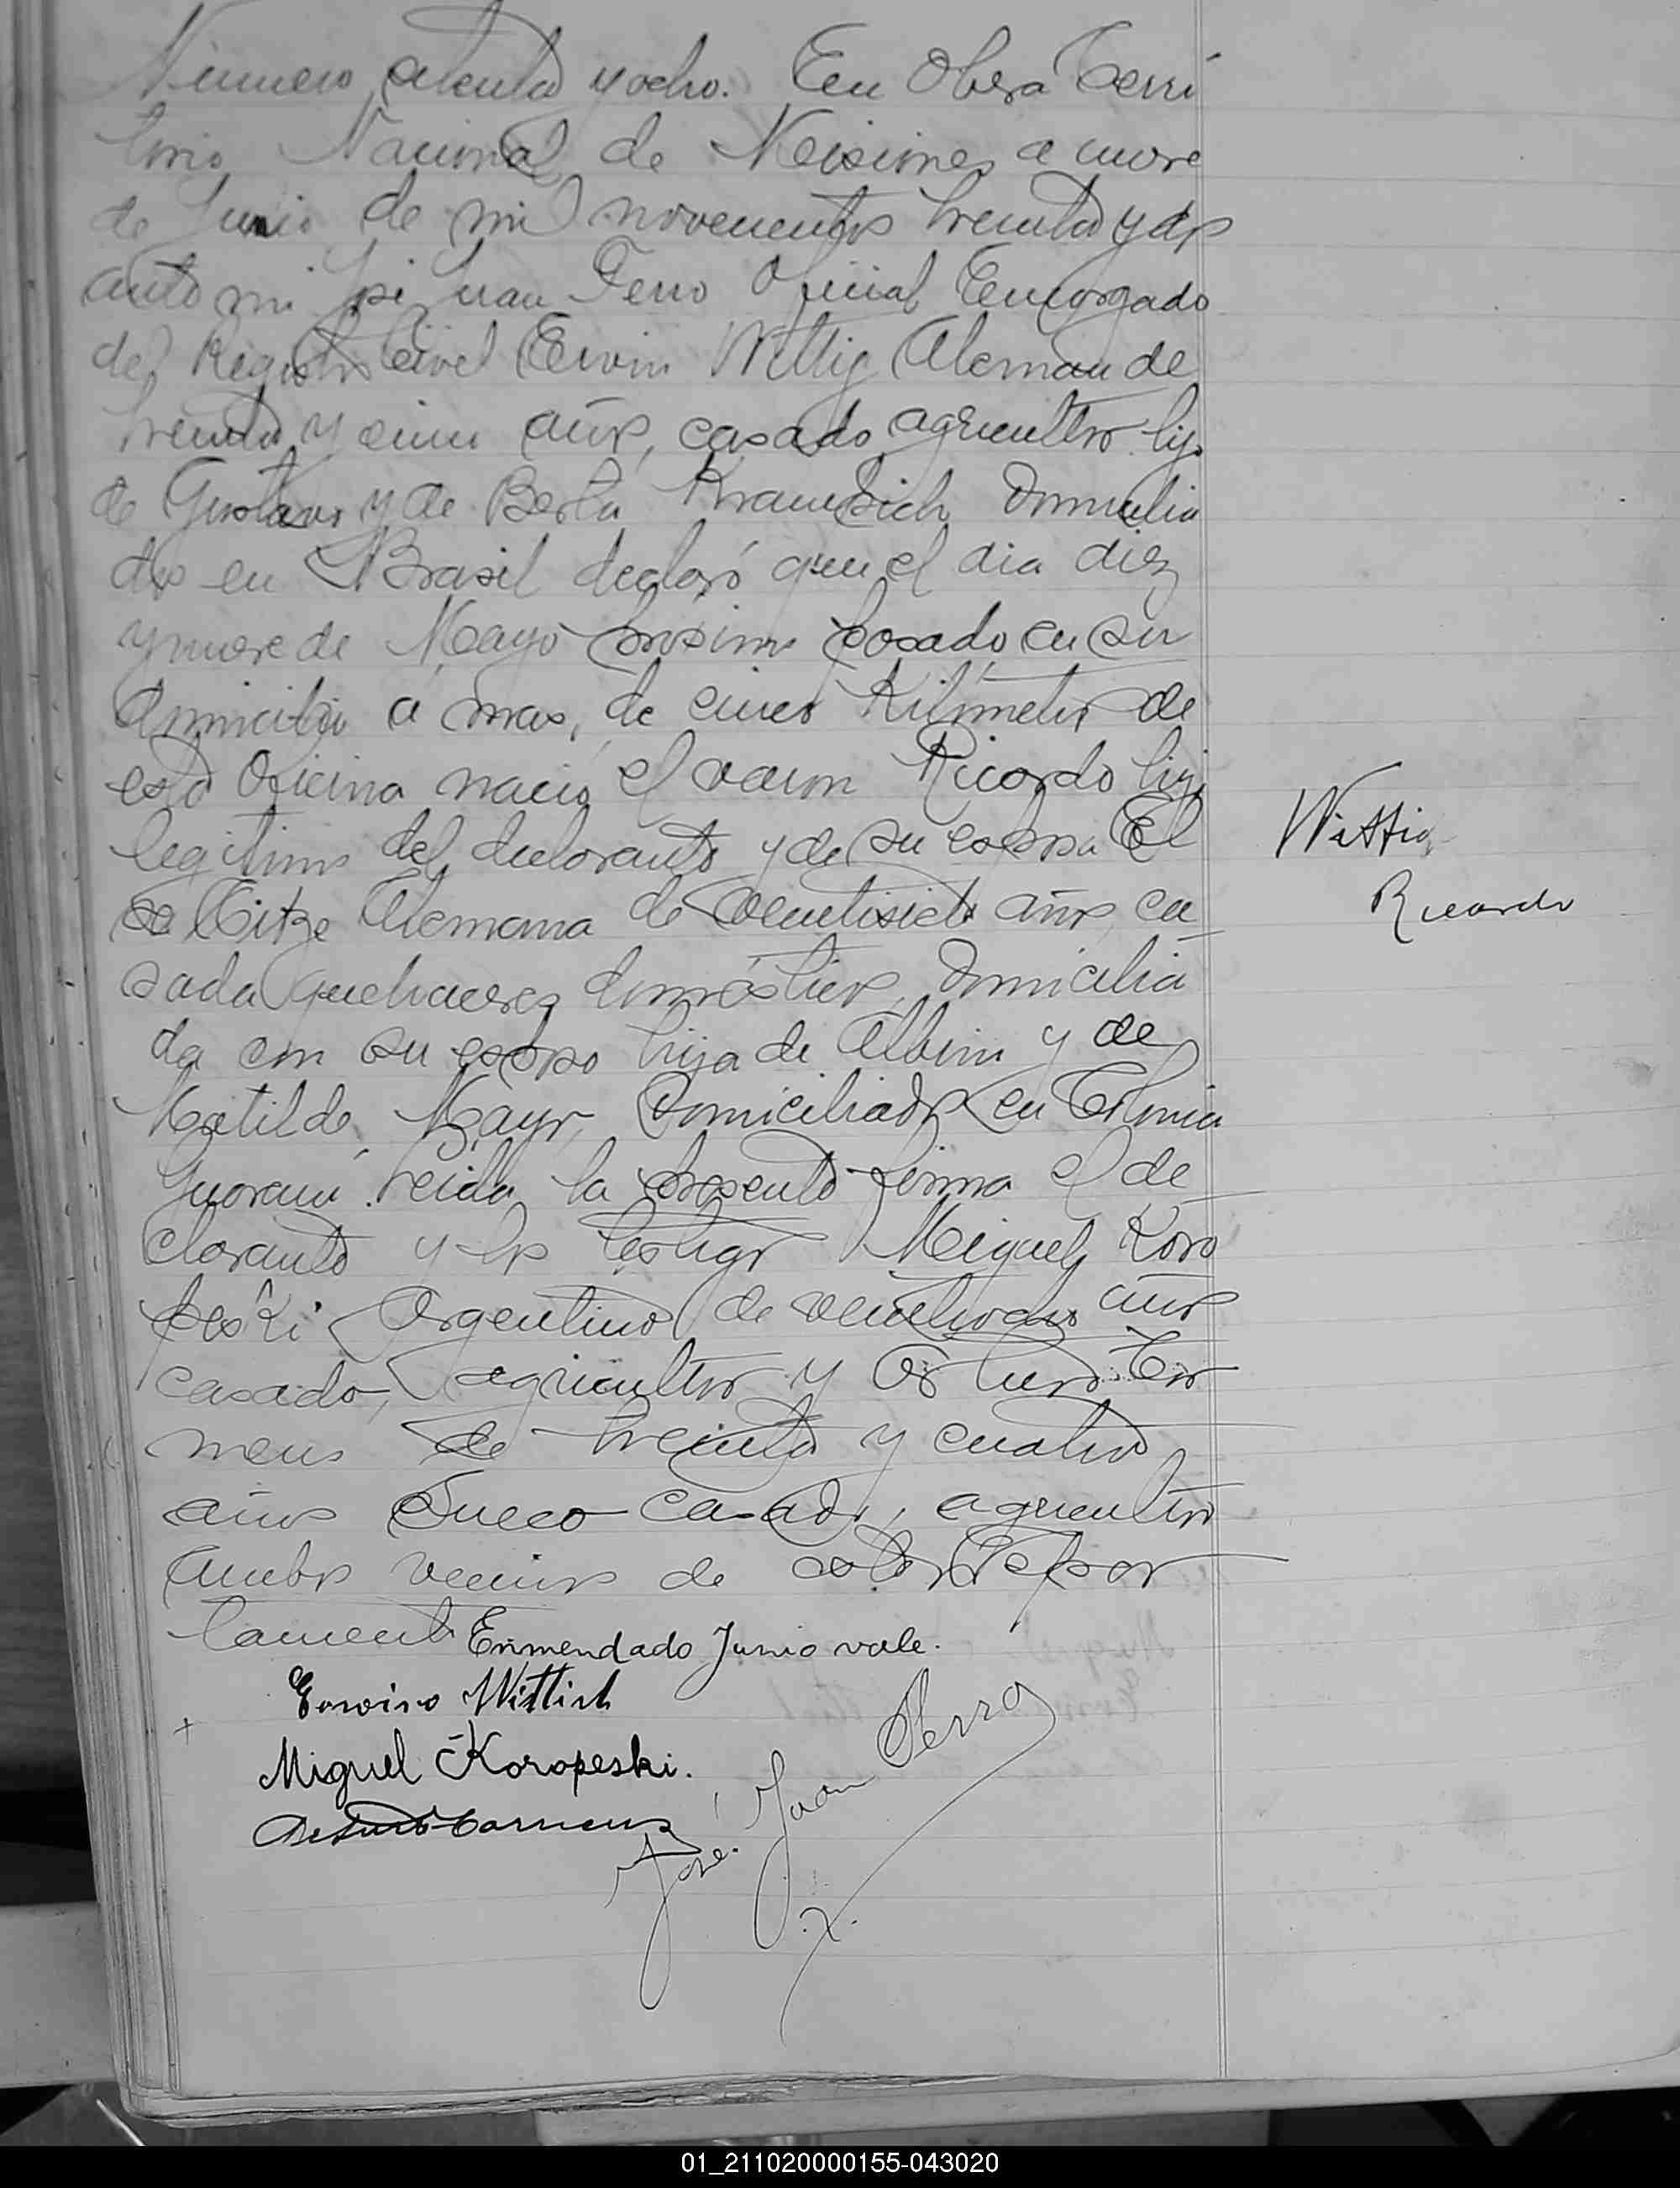 Número ochenta y ocho. En Oberá Terri
torio Nacional de Misiones a nueve
de Junio de mil novecientos treinta y dos
ante mi José Juan Ferro Oficial Encargado
del Registro Civil Ervin Wittig Aleman de
treinta y cinco años, casado agricultor hijo
de Gustavo y de Berta domicilia
dos en Brasil declaró que el dia diez
y nueve de Mayo próximo pasado en su
domicilio a mas de cinco Kilómetros de
esta Oficina nació el varon Ricardo hijo
legitimo del declarante y de su esposa El
sa Titze Alemana de veintisiete años, ca
sada quehaceres domésticos, domicilia
da con su esposo hija de Albino y de
Matilde Mayr, domiciliados en Colonia
Guarani. Leida la presente firma el de
clarante y los testigos Miguel Koro
peski Argentino de veintiocho años
casado, agricultor y
de treinta y cuatro
años Sueco casado, agricultor
ambos vecinos de este Depar
tamento Enmendado Junio vale.
Wittig
Ricardo
Erwino Wittich
Miguel Koropeski.
José Juan Ferro
01_211020000155-043020